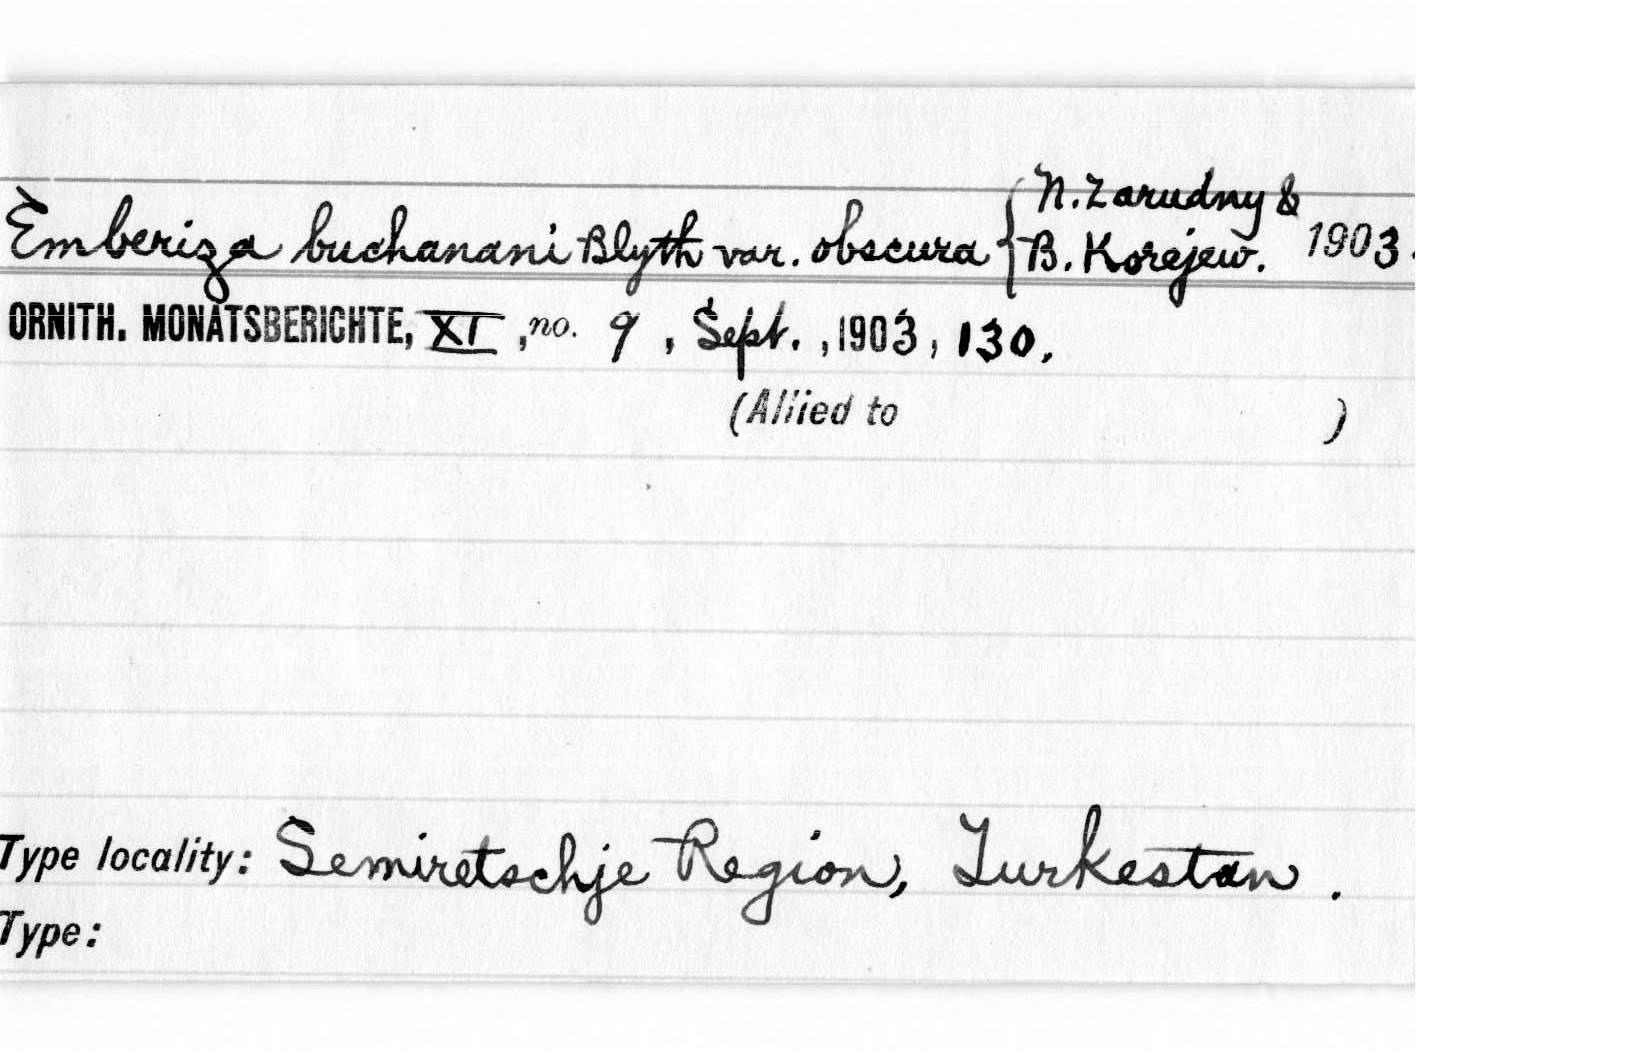 Emberiza buchanani Blyth var. obscura { N. Zarudny & B. Korejew. 1903.
ORNITH. MONATSBERICHTE, XI, no. 9, Sept., 1903, 130.
(Allied to )
Type locality: Semiretschje Region, Turkestan.
Type: